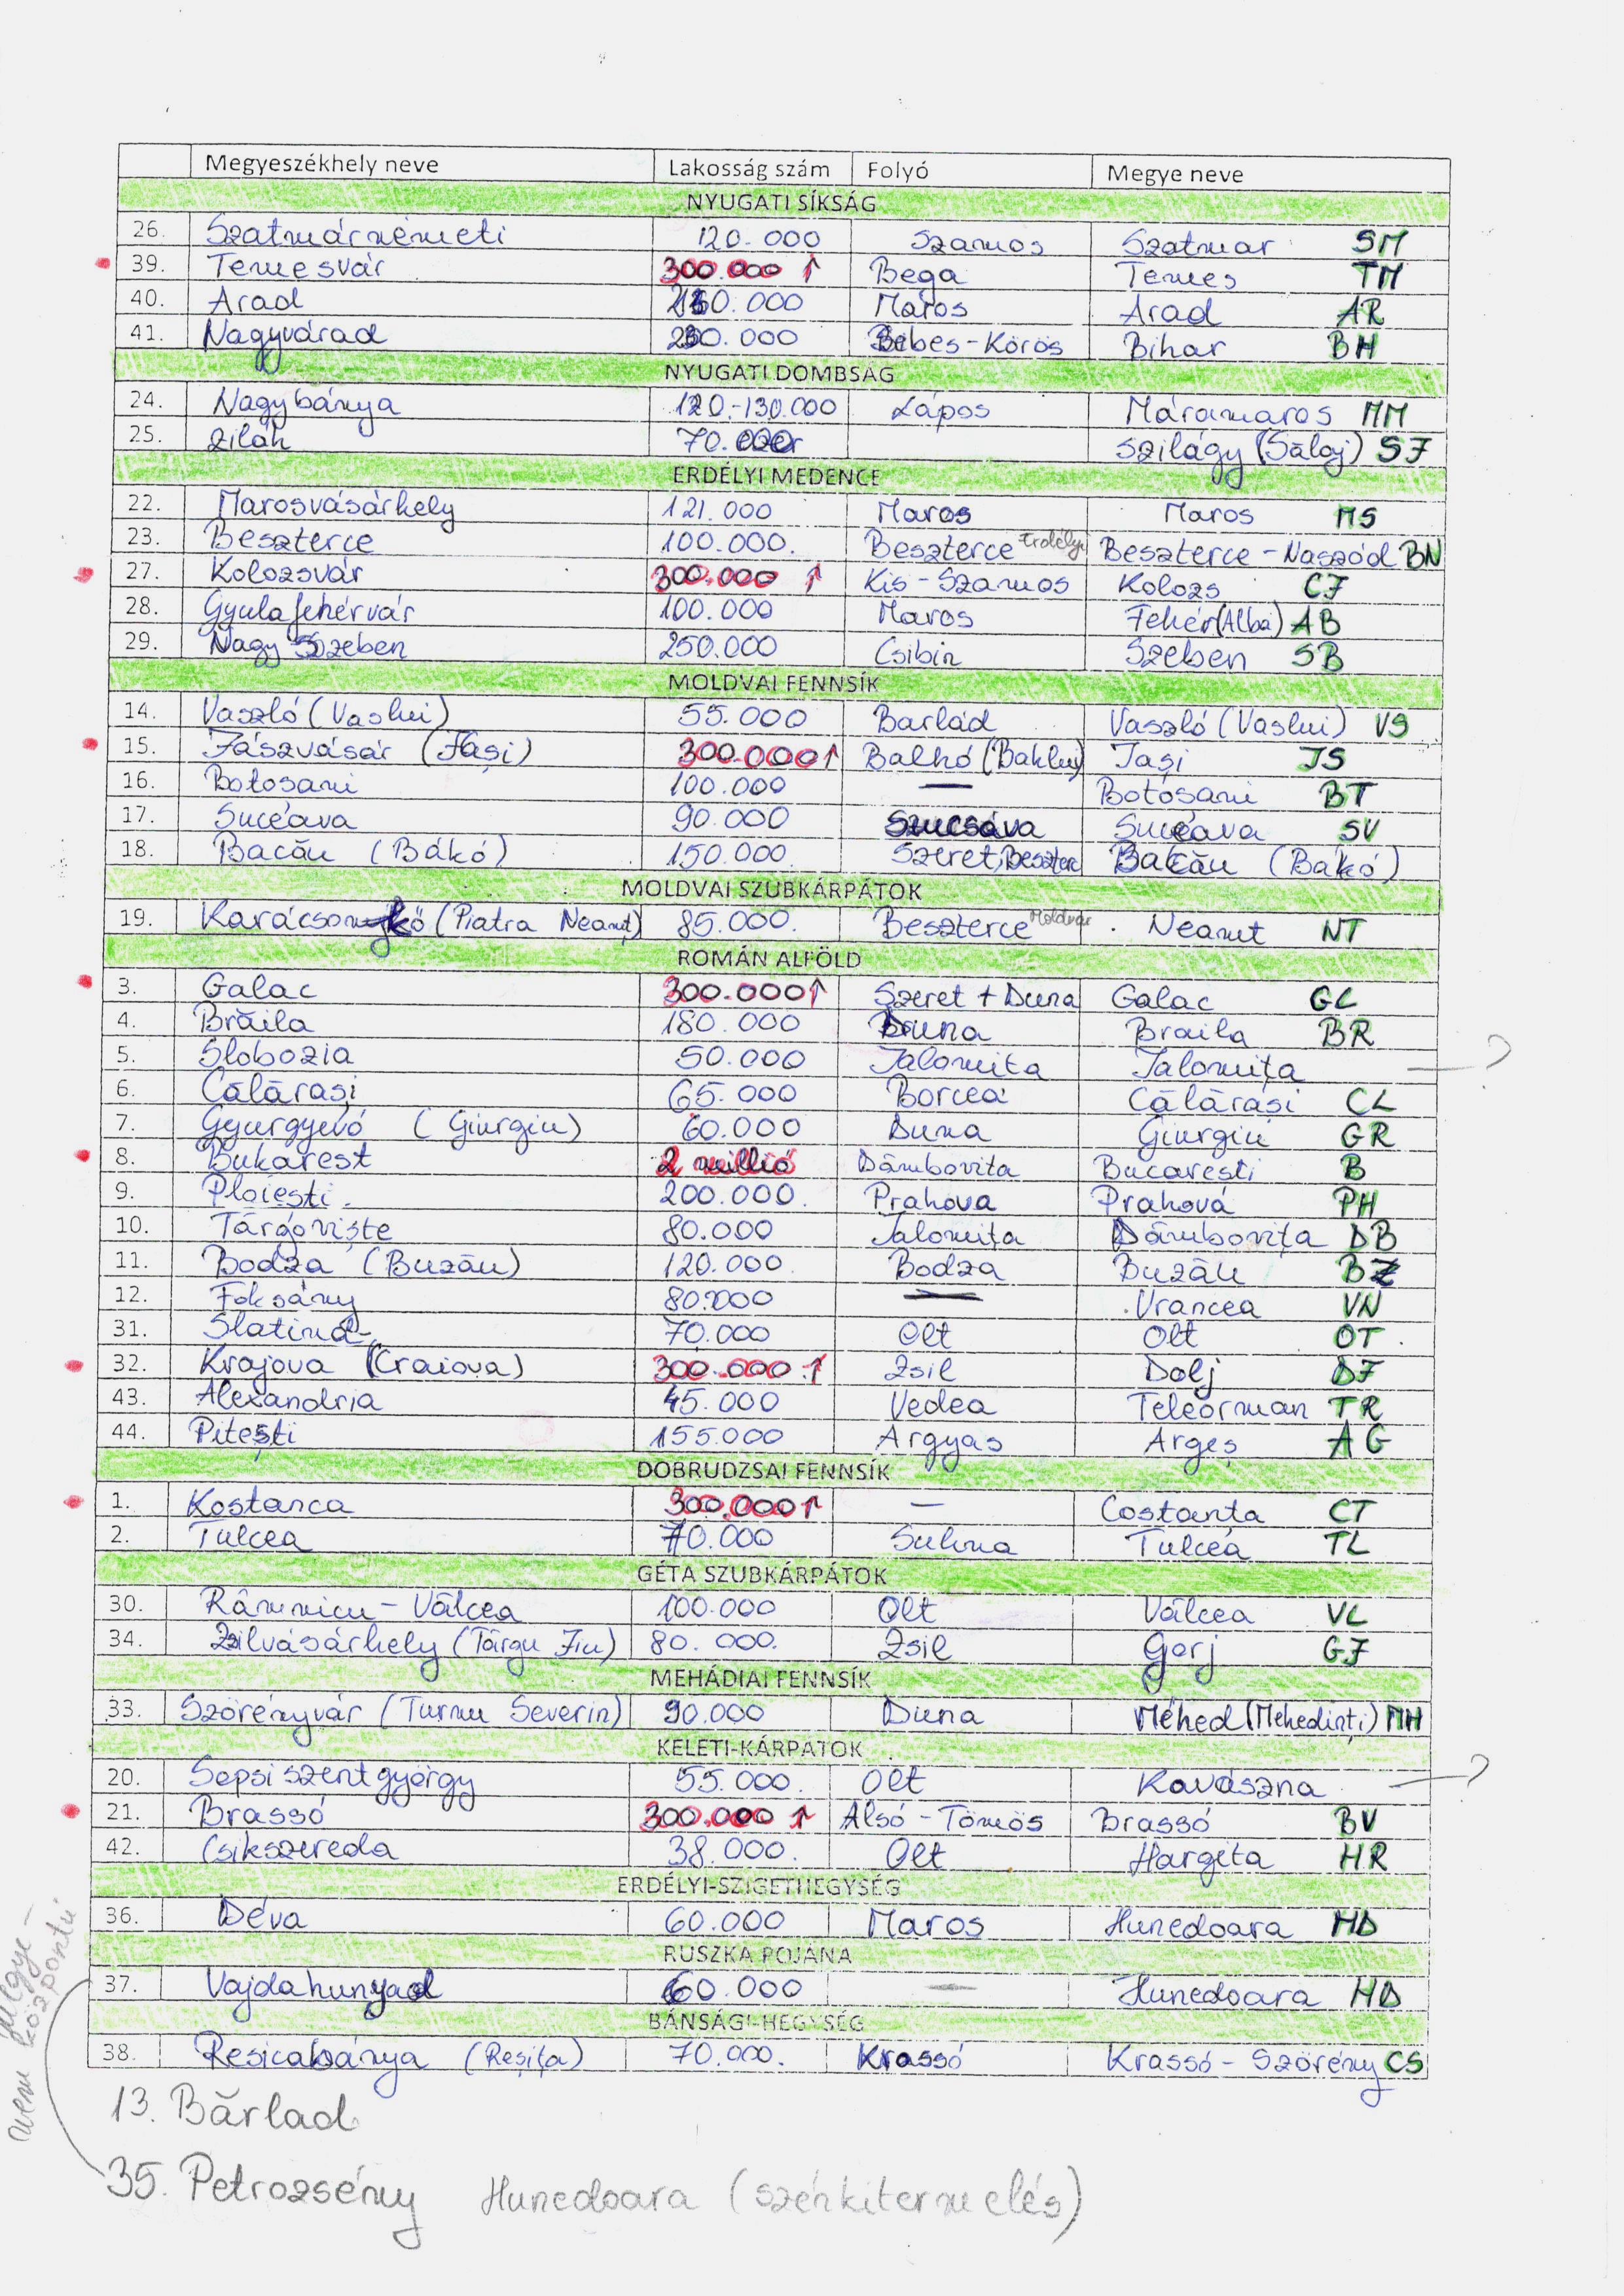 Megyeszékhely neve Lakosság szám Folyó Megye neve
NYUGATI SÍKSÁG
26. Szatmárnémeti 120.000 Szamos Szatmar SM
39. Temesvár 300.000 ↑ Bega Temes TM
40. Arad 000 Maros Arad AR
41. Nagyvárad 000 Sebes-Körös Bihar BH
NYUGATI DOMBSÁG
24. Nagybánya 120.-130.000 Lápos Máramaros MM
25. Zilah 70.000 Szilágy (Sălaj) SJ
ERDÉLYI MEDENCE
22. Marosvásárhely 121.000 Maros Maros MS
23. Beszterce 100.000. Beszterce Erdélyi Beszterce - Naszód BN
27. Kolozsvár 300.000 ↑ Kis-Szamos Kolozs CJ
28. Gyulafehérvár 100.000 Maros Fehér (Alba) AB
29. Nagy Szeben 250.000 Csibin Szeben SB
MOLDVAI FENNSÍK
14. Vaszló (Vaslui) 55.000 Barlád Vaszló (Vaslui) VS
15. Jászvásár (Iași) 300.000↑ Balhó (Bahlui) Iași IS
16. Botosani 100.000 — Botosani BT
17. Suceava 90.000 Szucsáva Suceava SV
18. Bacău (Bákó) 150.000 Szeret, Beszterc Bacău (Bakó)
MOLDVAI SZUBKÁRPÁTOK
19. Karácsonykő (Piatra Neamț) 85.000. Beszterce Moldvai Neamt NT
ROMÁN ALFÖLD
3. Galac 300.000↑ Szeret + Duna Galac GL
4. Brăila 180.000 Duna Braila BR
5. Slobozia 50.000 Ialomita Ialomița — ?
6. Călărași 65.000 Borcea Călărași CL
7. Gyurgyevó (Giurgiu) 60.000 Duna Giurgiu GR
8. Bukarest 2 millió Dâmbovita Bucaresti B
9. Ploiesti. 200.000. Prahova Prahová PH
10. Târgoviște 80.000 Ialomița Dâmbovița DB
11. Bodza (Buzău) 120.000 Bodza Buzău BZ
12. Foksány 80.000 — Vrancea VN
31. Slatina 70.000 Olt Olt OT
32. Krajova (Craiova) 300.000 ↑ Zsil Dolj DJ
43. Alexandria 45.000 Vedea Teleorman TR
44. Pitești 155.000 Argyas Argeș AG
DOBRUDZSAI FENNSÍK
1. Kostanca 300.000↑ — Costanța CT
2. Tulcea 70.000 Sulina Tulcea TL
GÉTA SZUBKÁRPÁTOK
30. Râmnicu - Vâlcea 100.000 Olt Vâlcea VL
34. Zsilvásárhely (Târgu Jiu) 80.000. Zsil Gorj GJ
MEHÁDIAI FENNSÍK
33. Szörényvár (Turnu Severin) 90.000 Duna Méhed (Mehedinți) MH
KELETI-KÁRPÁTOK
20. Sepsiszentgyörgy 55.000. Olt Kovászna — ?
21. Brassó 300.000 ↑ Alsó-Tömös Brassó BV
42. Csikszereda 38.000. Olt Hargita HR
ERDÉLYI-SZIGETHEGYSÉG
36. Déva 60.000 Maros Hunedoara HD
RUSZKA POJÁNA
37. Vajdahunyad 60.000 — Hunedoara HD
BÁNSÁGI-HEGYSÉG
38. Resicabánya (Reșița) 70.000. Krassó Krassó - Szörény CS
nem megye-
központú
13. Bărlad
35. Petrozsény Hunedoara (szénkitermelés)